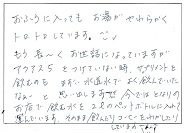 おふろに入っても お湯が やわらかく
トロトロしています。
もう長〜く お世話になっていますが
アクアス5 をつけていない時、サプリメントを
飲むのも まずい水道水で よく飲んでいた
なぁ〜と 思い出します 今ではとなりの
お店で 飲む水を 2ℓのペットボトルに入れて
そのまま飲んだり コーヒーを
しています